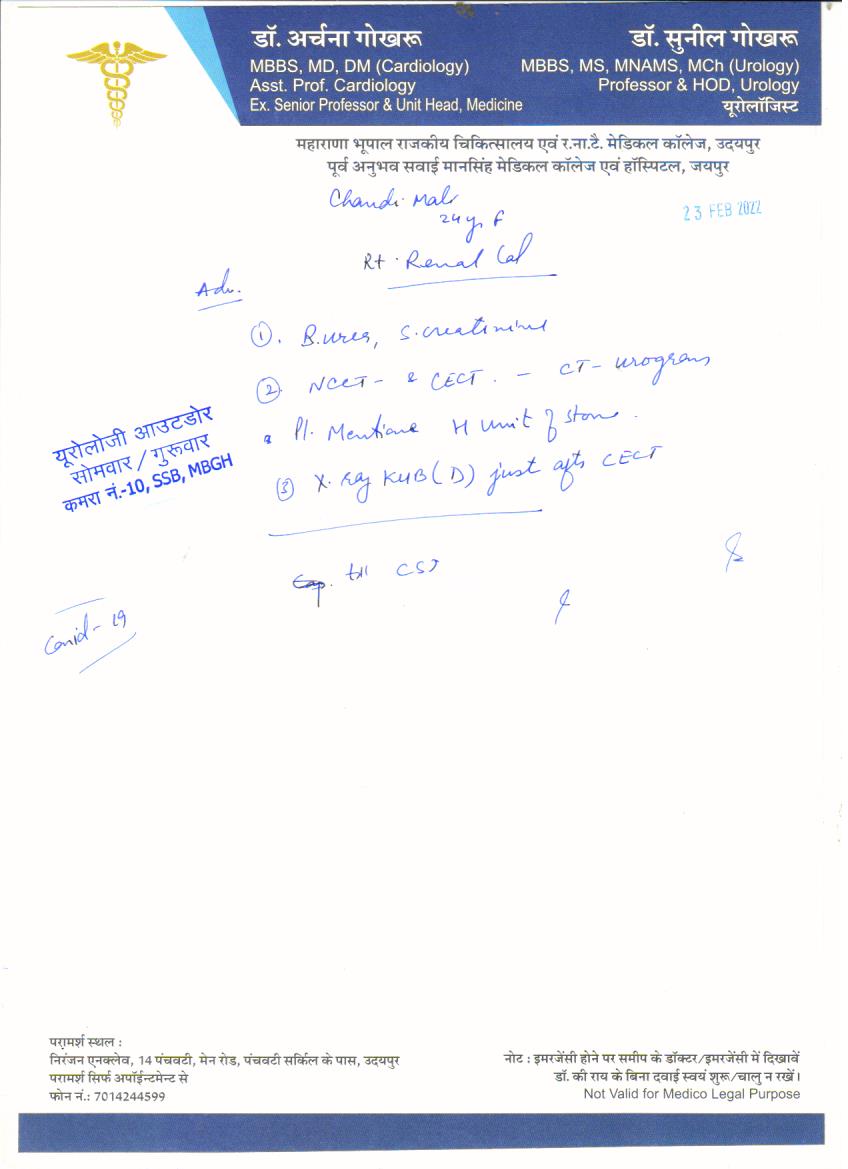 डॉ. अर्चना गोखरू
MBBS, MD, DM (Cardiology)
Asst. Prof. Cardiology
Ex. Senior Professor & Unit Head, Medicine
डॉ. सुनील गोखरू
MBBS, MS, MNAMS, MCh (Urology)
Professor & HOD, Urology
यूरोलॉजिस्ट
महाराणा भूपाल राजकीय चिकित्सालय एवं र.ना.टै. मेडिकल कॉलेज, उदयपुर
पूर्व अनुभव सवाई मानसिंह मेडिकल कॉलेज एवं हॉस्पिटल, जयपुर
23 FEB 2022
24 y F
Rt. Renal Cal
Adv.
①. B.urea, S.creatinine
② NCCT - & CECT. - CT- urogram
Pl. Mentione H Unit of stone.
③ X-ray KUB (D) just after CECT
यूरोलोजी आउटडोर
सोमवार / गुरूवार
कमरा नं.-10, SSB, MBGH
Covid-19
परामर्श स्थल :
निरंजन एनक्लेव, 14 पंचवटी, मेन रोड, पंचवटी सर्किल के पास, उदयपुर
परामर्श सिर्फ अपॉईन्टमेन्ट से
फोन नं.: 7014244599
नोट : इमरजेंसी होने पर समीप के डॉक्टर/इमरजेंसी में दिखावें
डॉ. की राय के बिना दवाई स्वयं शुरू/चालु न रखें।
Not Valid for Medico Legal Purpose